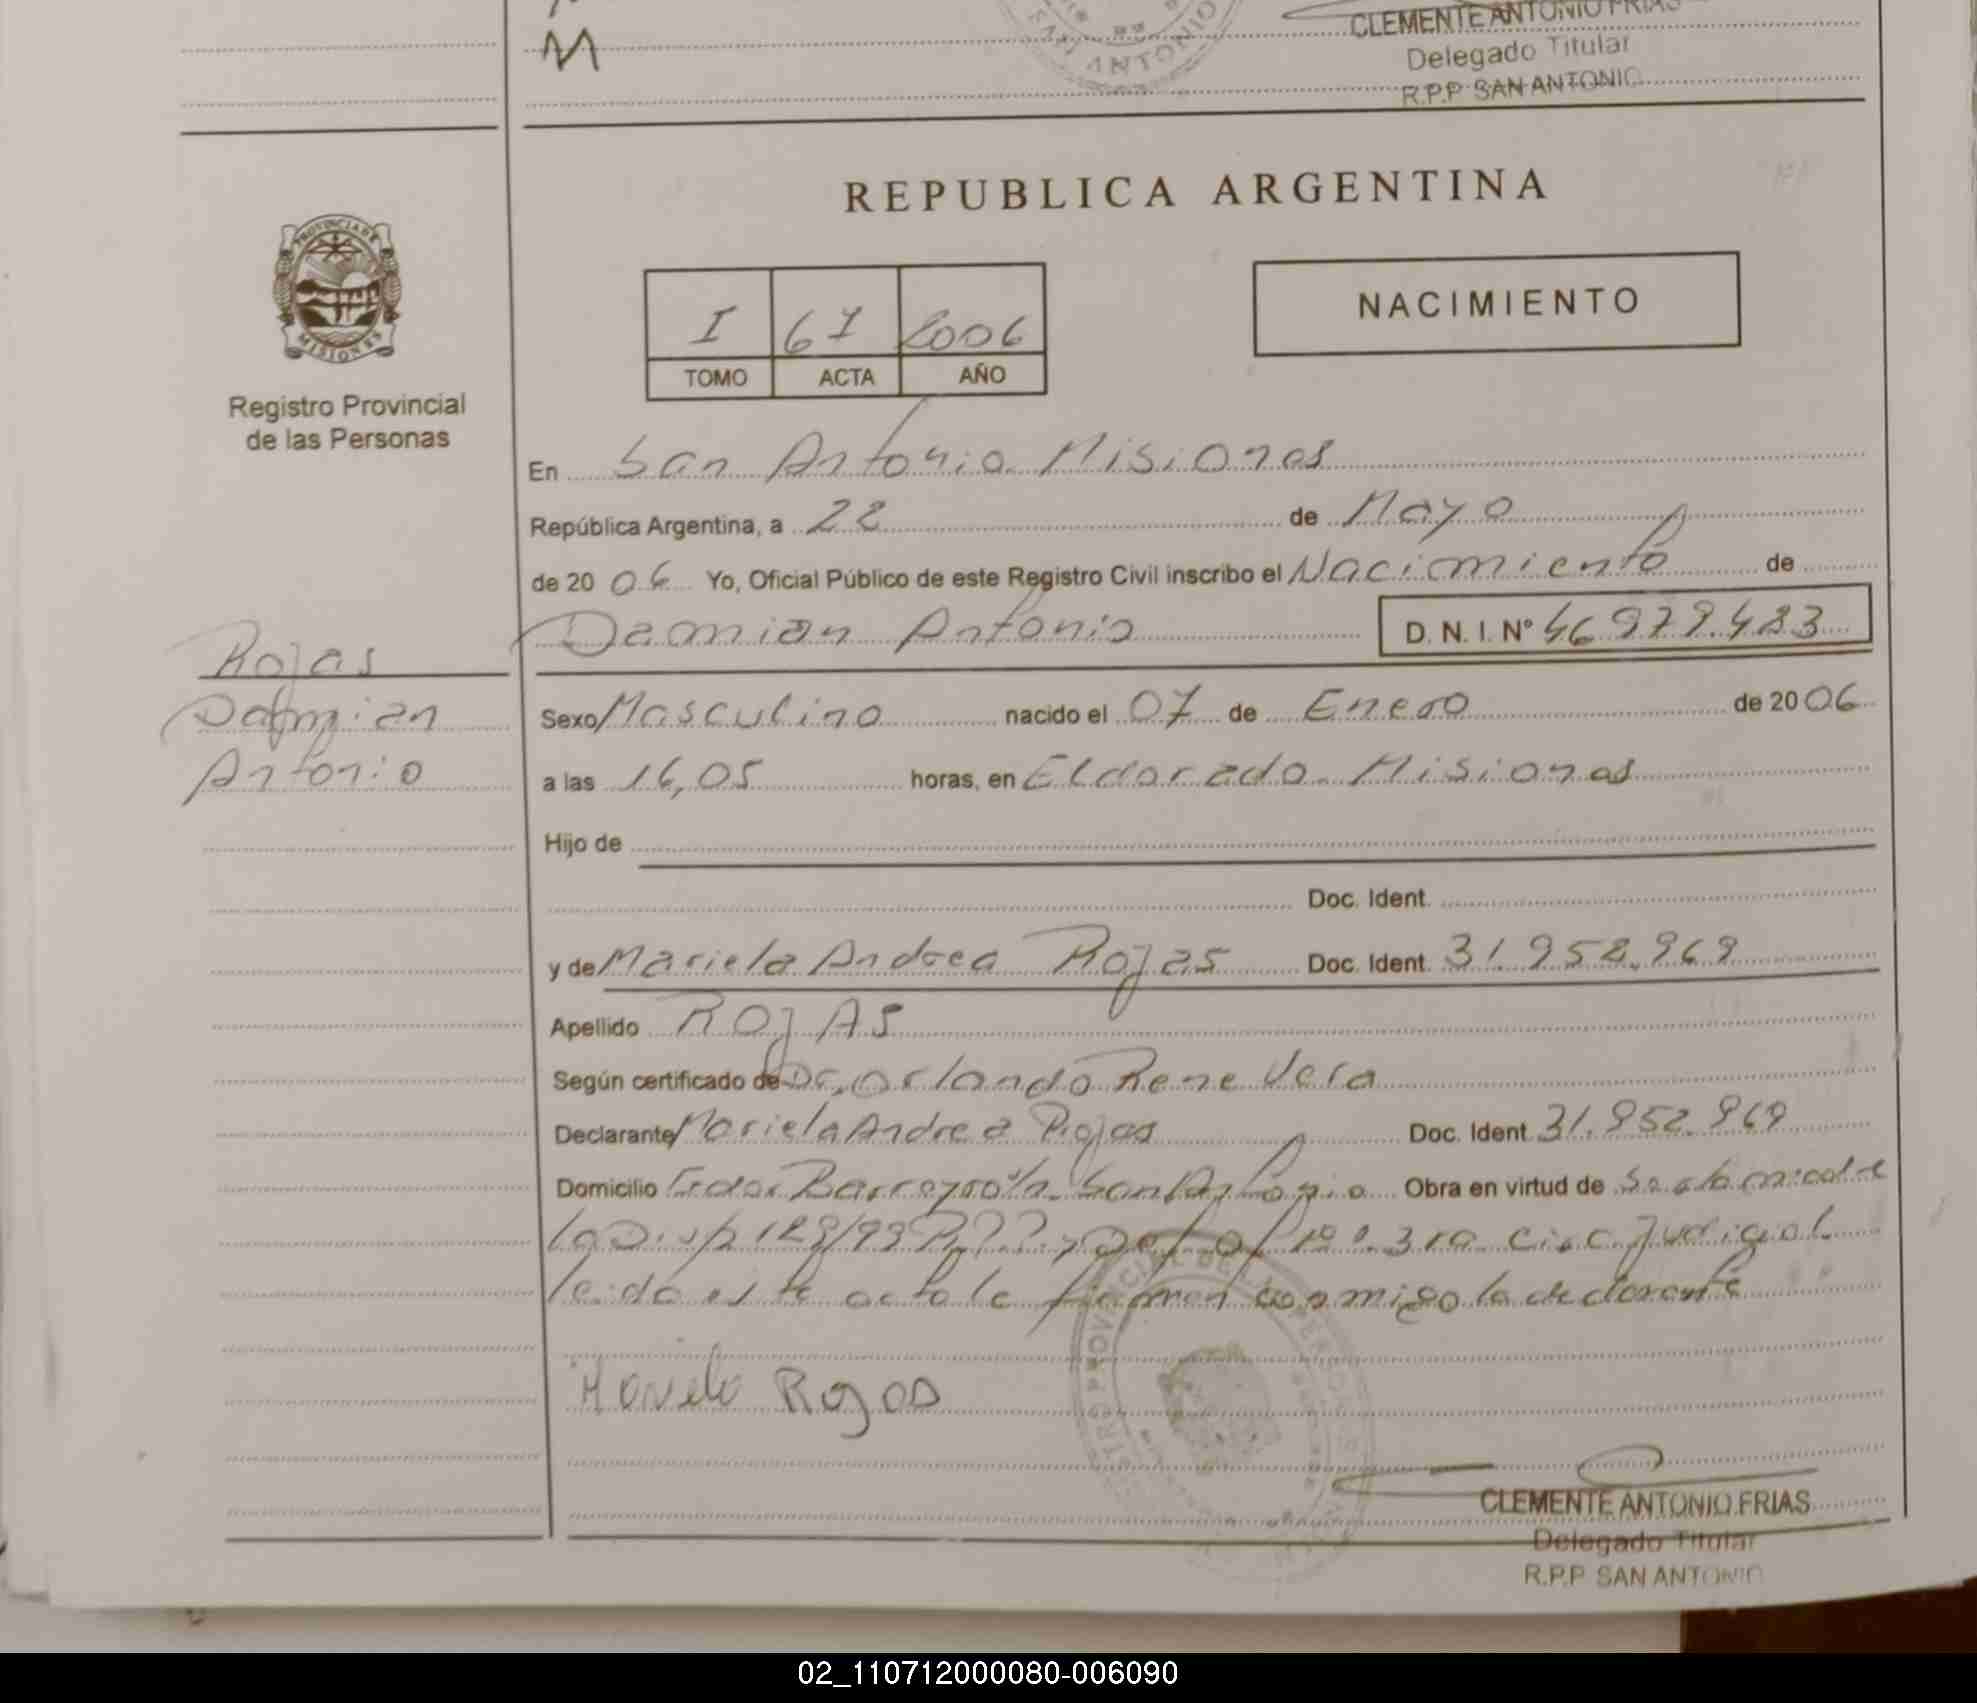 M
SAN ANTONIO
CLEMENTE ANTONIO FRIAS
Delegado Titular
R.P.P SAN ANTONIO
REPUBLICA ARGENTINA
PROVINCIA DE
MISIONES
Registro Provincial
de las Personas
I 61 2006
TOMO ACTA AÑO
NACIMIENTO
En San Antonio Misiones
República Argentina, a 22 de Mayo
de 2006 Yo, Oficial Público de este Registro Civil inscribo el Nacimiento de
Damian Antonio D. N. I. Nº 46979483
Rojas
Damian
Antonio
Sexo Masculino nacido el 07 de Enero de 2006
a las 16,05 horas, en Eldorado Misiones
Hijo de
Doc. Ident.
y de Mariela Andrea Rojas Doc. Ident. 31.952.969
Apellido ROJAS
Según certificado de Dr. Orlando Rene Vera
Declarante Mariela Andrea Rojas Doc. Ident. 31.952.969
Domicilio Barreyro San Antonio Obra en virtud de
la 3ra Circ Judicial
leida acta la firman conmigo la declarante
Mariela Rojas
CLEMENTE ANTONIO FRIAS
Delegado Titular
R.P.P SAN ANTONIO
02_110712000080-006090